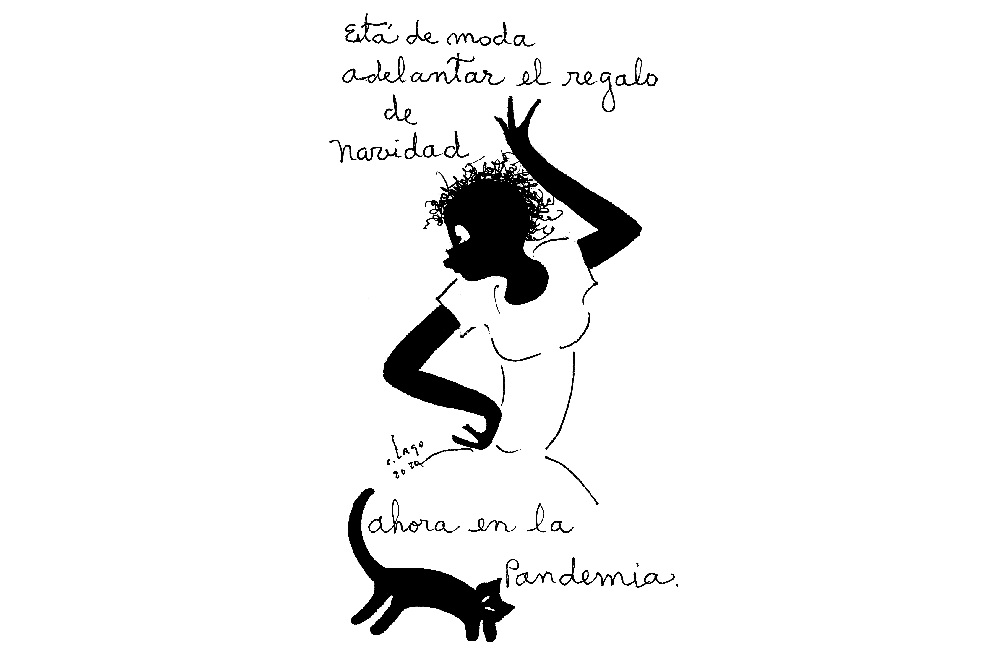 Está de moda
adelantar el regalo
de
Navidad
c. Lago
2020
ahora en la
Pandemia.